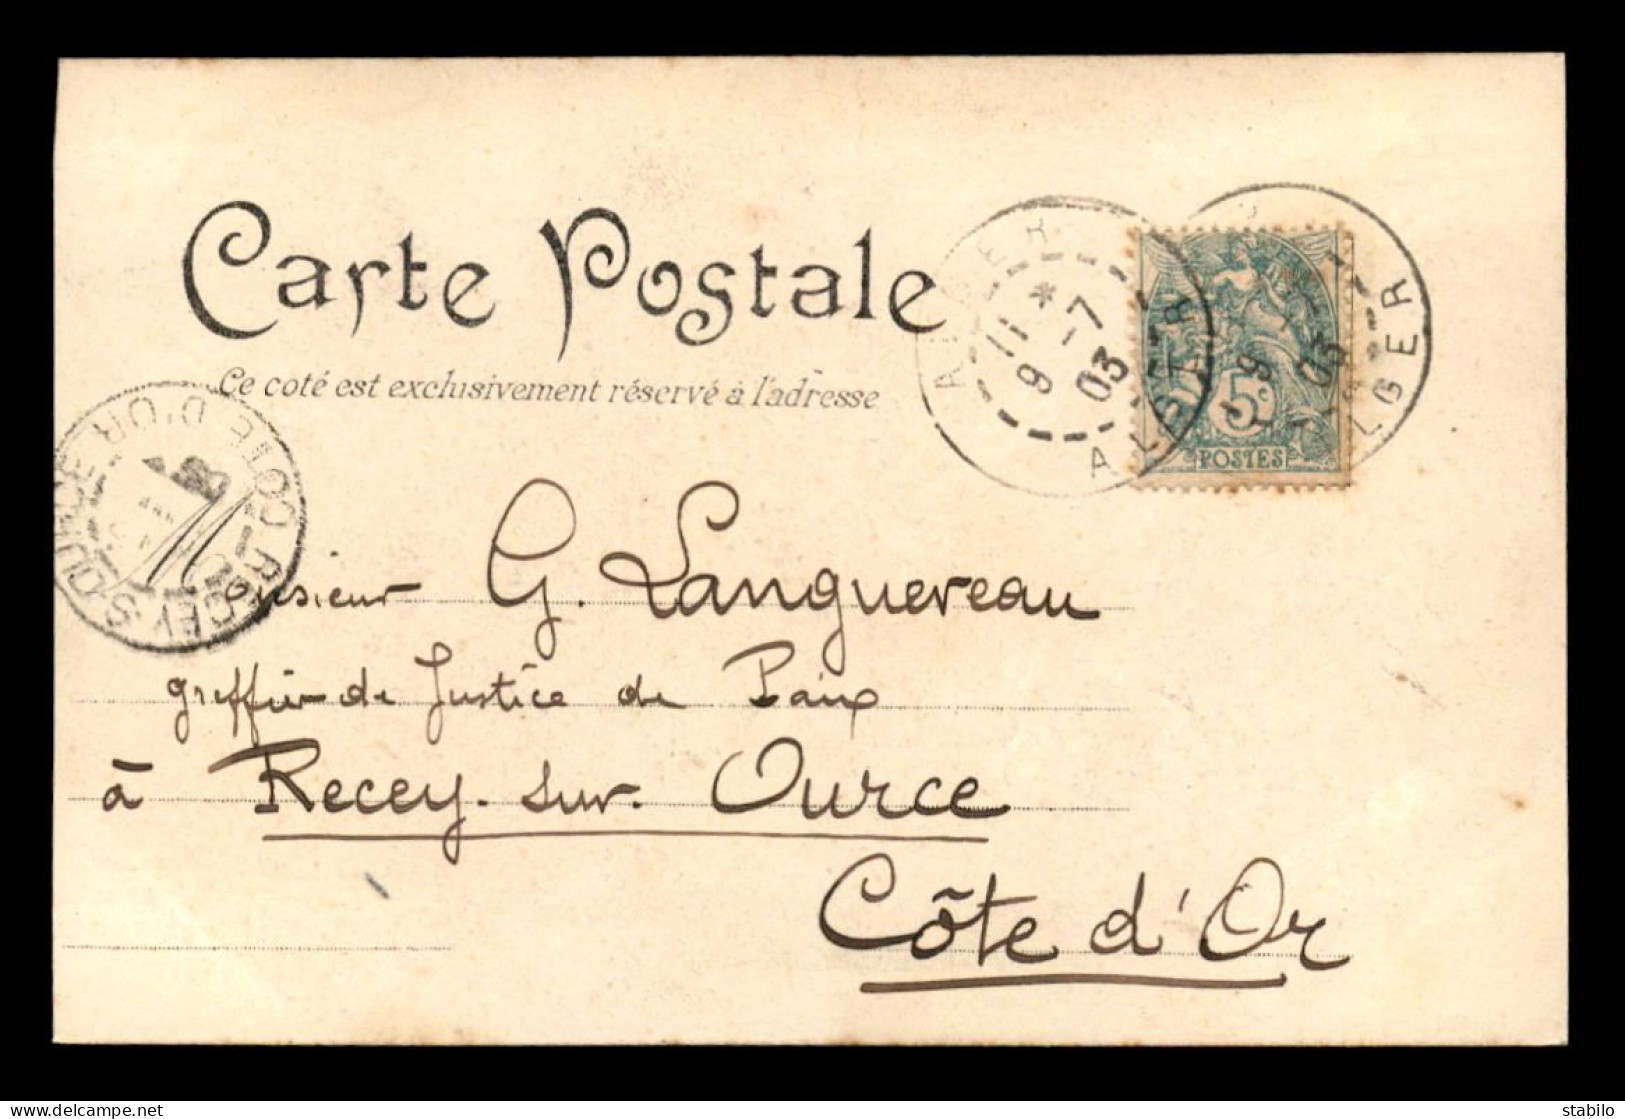 Carte Postale
Ce coté est exclusivement réservé à l'adresse
ALGER
11 *
9 -7
03
ALGER
5c
POSTES
RECEY-S-OURCE
COTE D'OR
Monsieur G. Languereau
greffier de Justice de Paix
à Recey-sur-Ource
Côte d'Or
stabilo